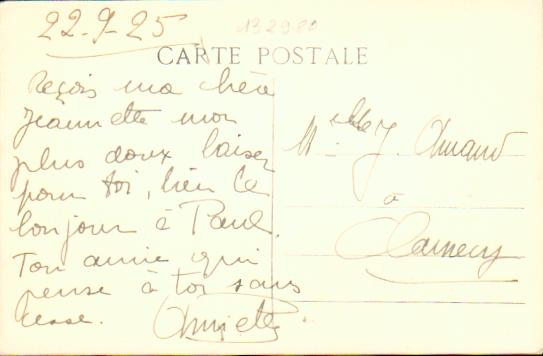 22-9-25
132980
CARTE POSTALE
Reçois ma chère
Jeannette mon
plus doux baiser
pour toi, bien le
bonjour à Paul.
Ton amie qui
pense à toi sans
cesse.
Mlle J. Amand
à
Clamecy